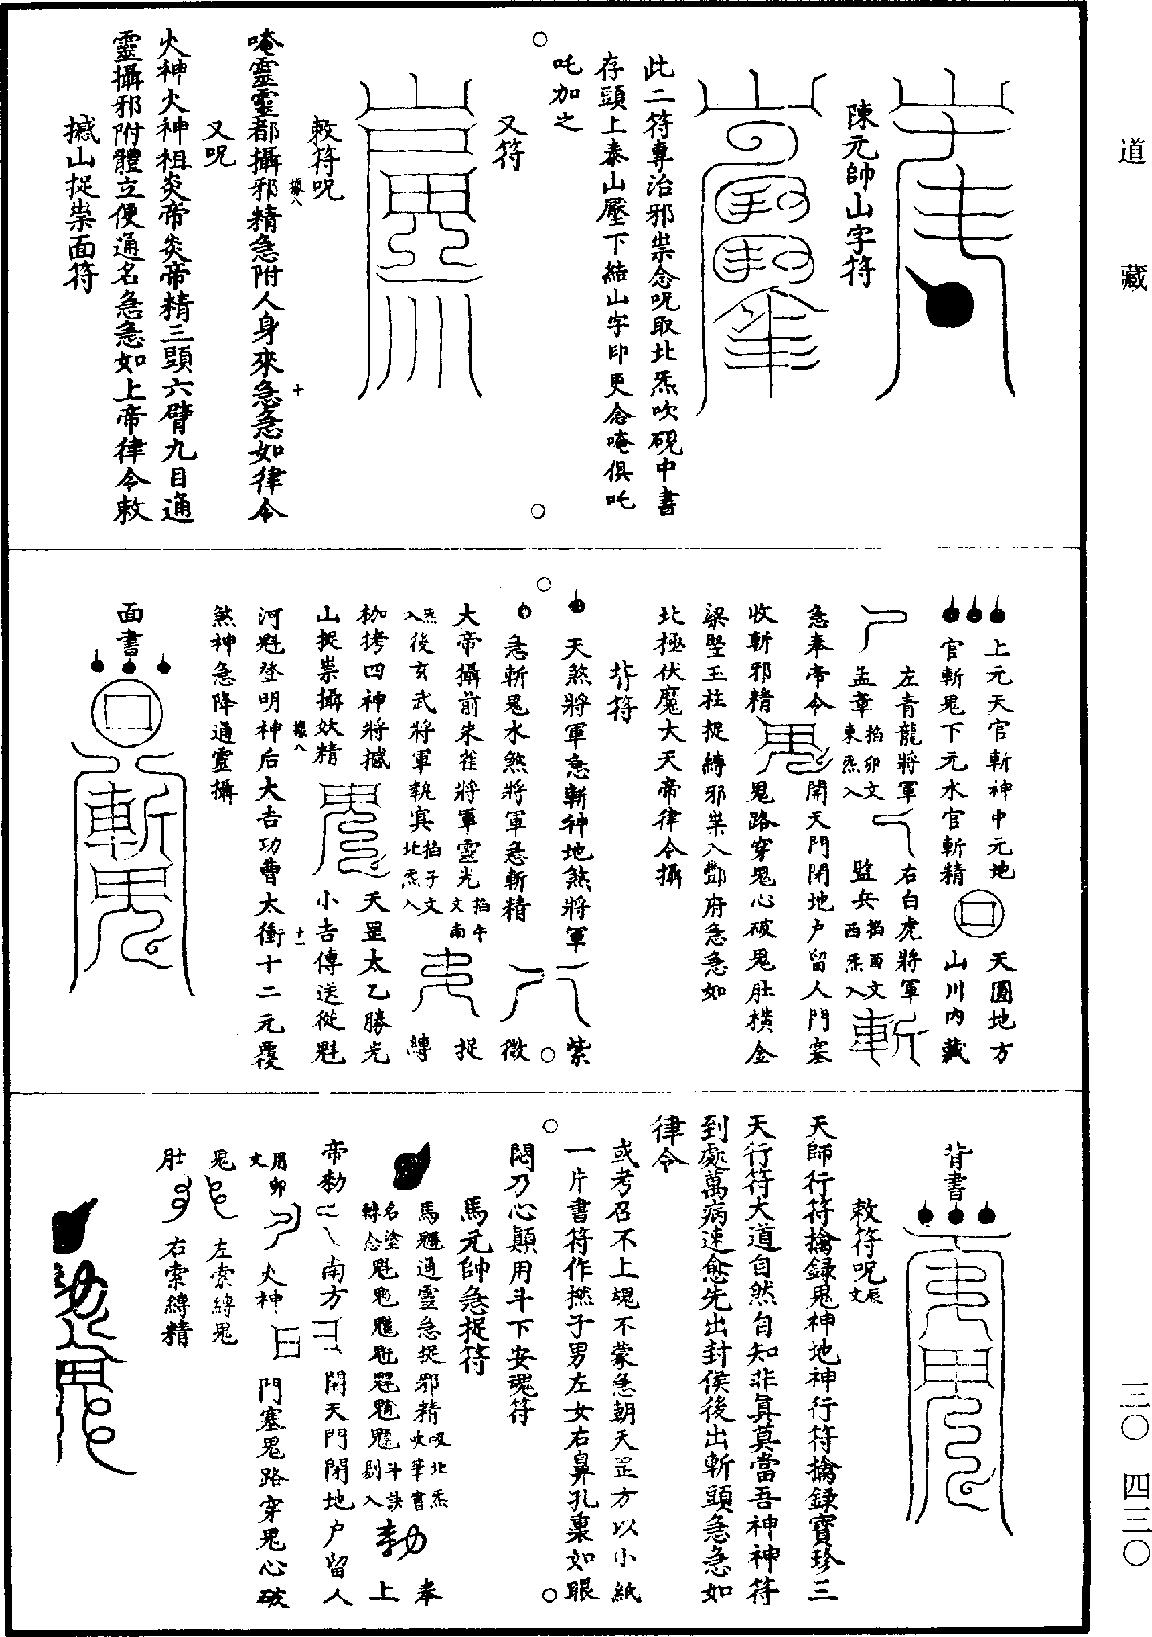 道藏
陳元帥山字符
此二符專治邪祟念呪取北炁吹硯中書
存頭上泰山壓下結山字印更念唵俱吒
吒加之
又符
敕符呪
唵靈靈都攝邪精急附人身來急急如律令
又呪
火神火神祖炎帝炎帝精三頭六臂九目通
靈攝邪附體立便通名急急如上帝律令敕
撼山捉祟面符
上元天官斬神中元地
官斬鬼下元水官斬精
天圓地方
山川內藏
左青龍將軍
孟章掐卯文東炁入
右白虎將軍
監兵掐酉文西炁入
斬
急奉帝令
開天門閉地户留人門塞
收斬邪精
鬼
鬼路穿鬼心破鬼肚橫金
梁竪玉柱捉縛邪祟入酆府急急如
北極伏魔大天帝律令攝
背符
天煞將軍急斬神地煞將軍
紫
急斬鬼水煞將軍急斬精
微
大帝攝前朱雀將軍靈光掐午文南
捉
炁入後玄武將軍執冥掐子文北炁入
縛
枷拷四神將撼
天罡太乙勝光
山捉祟攝妖精
小吉傳送從魁
河魁登明神后大吉功曹太衝十二元覆
煞神急降通靈攝
面書
斬鬼
背書
敕符呪辰文
天師行符擒録鬼神地神行符擒録寶珍三
天行符大道自然自知非真莫當吾神神符
到處萬病速愈先出封侯後出斬頭急急如
律令
或考召不上塊不蒙急朝天罡方以小紙
一片書符作撚子男左女右鼻孔稟如眼
悶乃心顛用斗下安魂符
馬元帥急捉符
馬魋通靈急捉邪精吸北炁吹筆書
奉
斗訣剔入
勑
上
帝勑
南方
開天門閉地户留人
用卯文
火神
門塞鬼路穿鬼心破
鬼
左索縛鬼
肚
右索縛精
三〇　四三〇